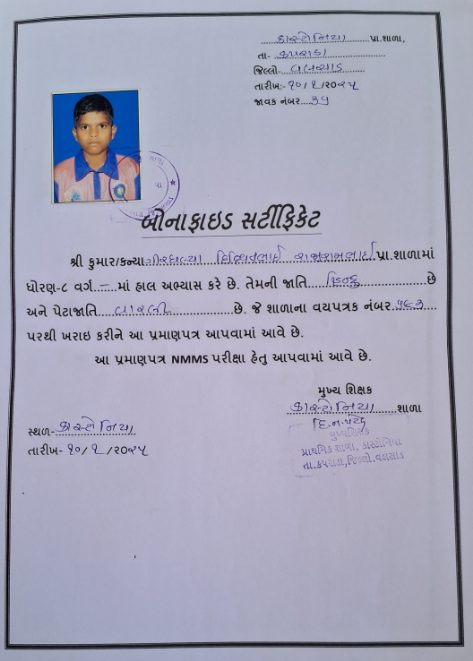 કાસ્ટોનિયા પ્રા.શાળા,
તા- કપરાડા
જિલ્લો- વલસાડ
તારીખ:- ૧૦/૧/૨૦૨૫
જાવક નંબર....૩૫
બોનાફાઇડ સર્ટીફિકેટ
શ્રી કુમાર/કન્યા પ્રા.શાળામાં
ધોરણ-૮ વર્ગ – માં હાલ અભ્યાસ કરે છે. તેમની જાતિ હિન્દુ છે
અને પેટાજાતિ વારલી છે. જે શાળાના વયપત્રક નંબર
પરથી ખરાઇ કરીને આ પ્રમાણપત્ર આપવામાં આવે છે.
આ પ્રમાણપત્ર NMMS પરીક્ષા હેતુ આપવામાં આવે છે.
મુખ્ય શિક્ષક
કાસ્ટોનિયા શાળા
મુખ્યશિક્ષક
પ્રાથમિક શાળા, કાસ્ટોનિયા
તા.કપરાડા,જિલ્લો.વલસાડ
સ્થળ- કાસ્ટોનિયા
તારીખ- ૧૦/૧/૨૦૨૫